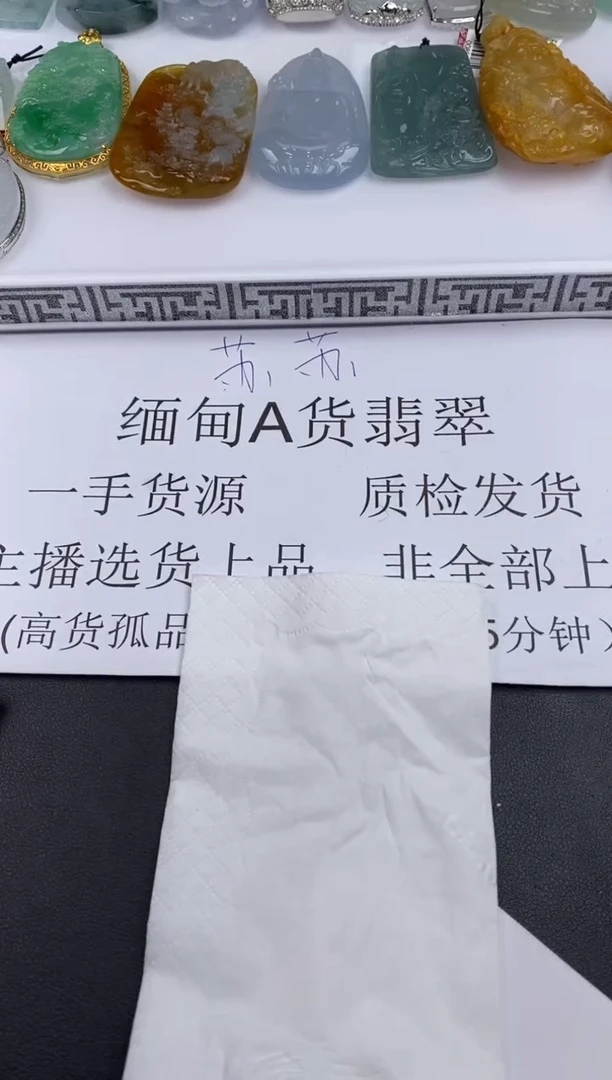 苏苏
缅甸A货翡翠
一手货源 质检发货
主播选货上品 非全部上
(高货孤品 5分钟）